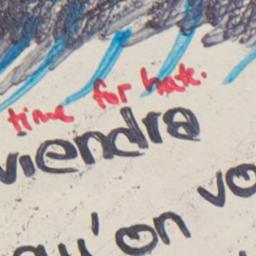 time for hate.
viendra
qu'on vo